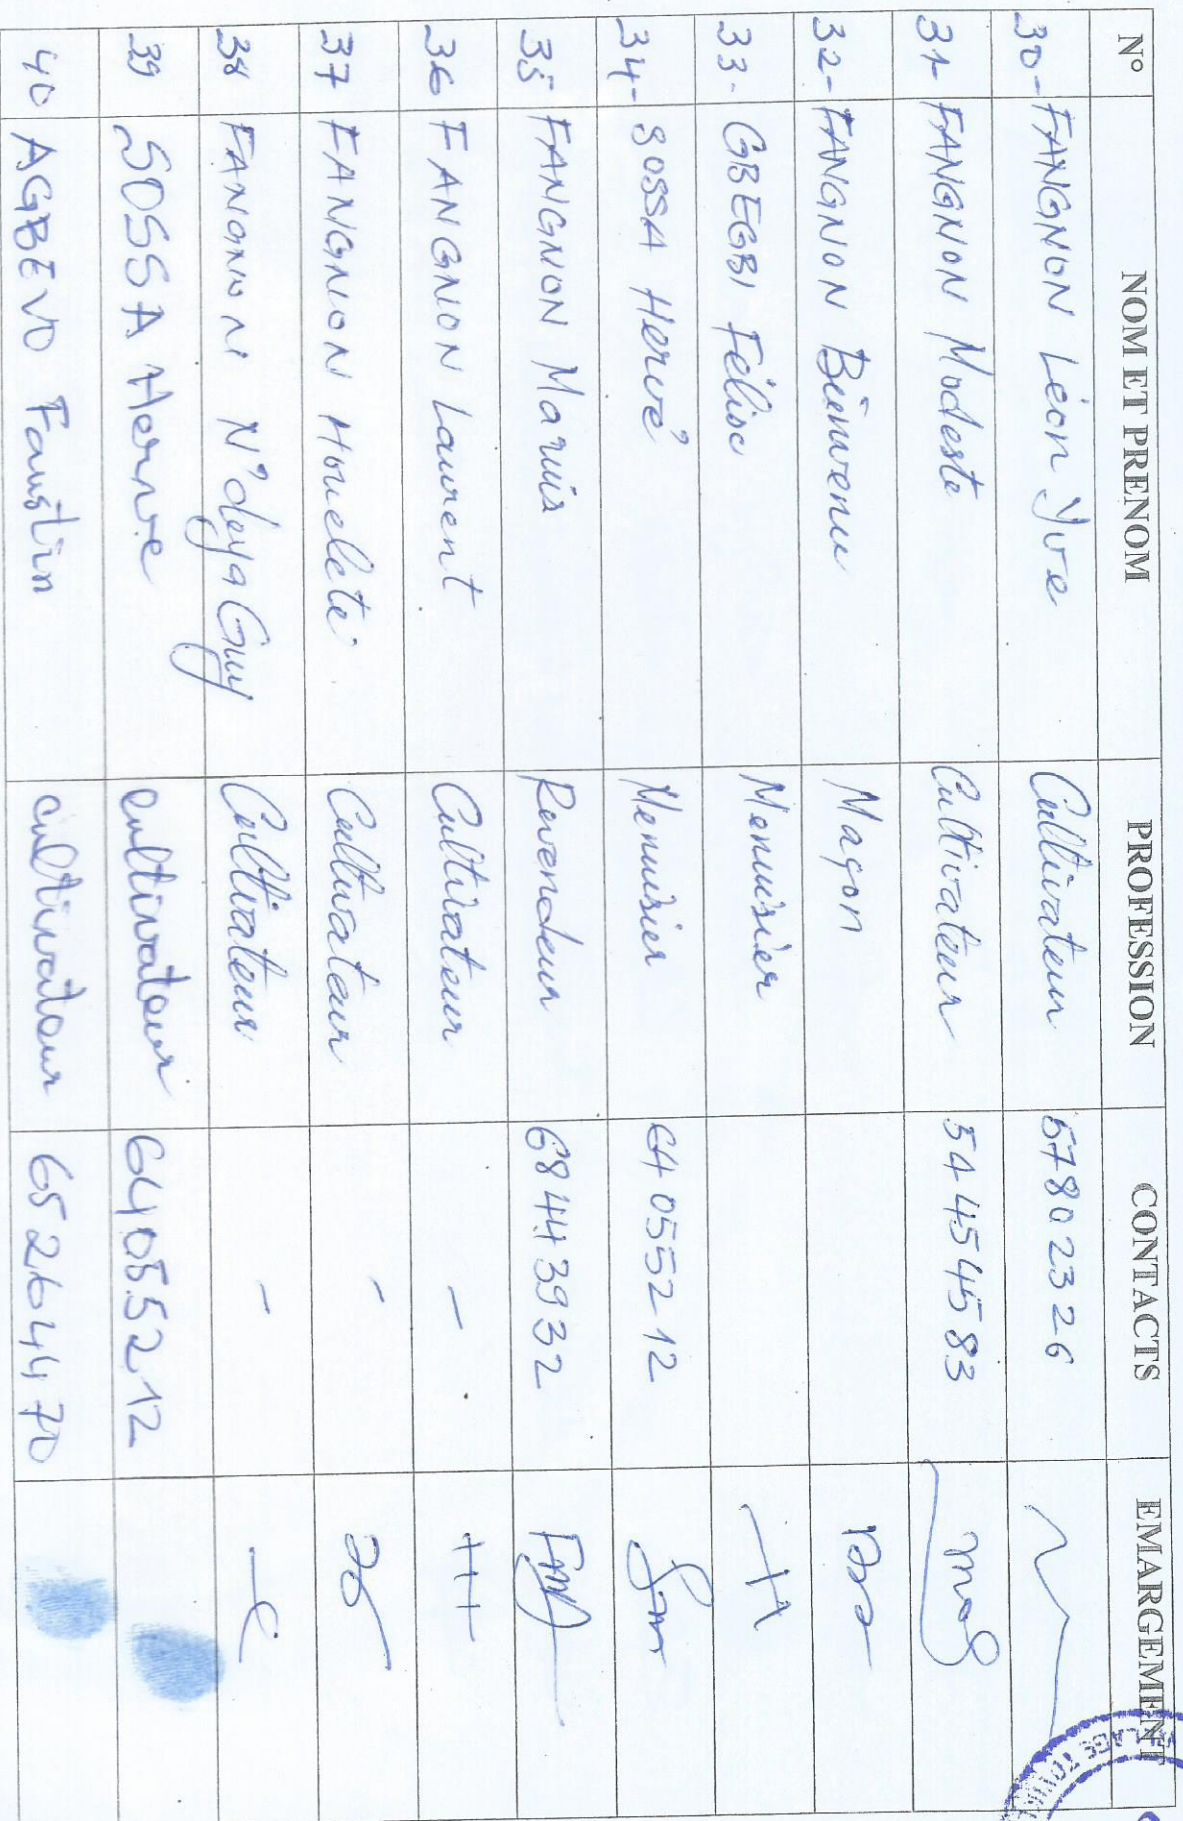 N° NOM ET PRENOM PROFESSION CONTACTS EMARGEMENT
30- FANGNON Léon Yve Cultivateur 57802326
31- FANGNON Modeste Cultivateur 54454583
32- FANGNON Bienvenu Maçon
33- GBEGBI Félise Menuisier
34- SOSSA Hervé Menuisier 64055212
35 FANGNON Marius Revendeur 68443932
36 FANGNON Laurent Cultivateur -
37 FANGNON Houeleté Cultivateur -
38 FANGNON N'deya Guy Cultivateur -
39 SOSSA Herve cultivateur 64055212
40 AGBEVO Faustin cultivateur 65264470